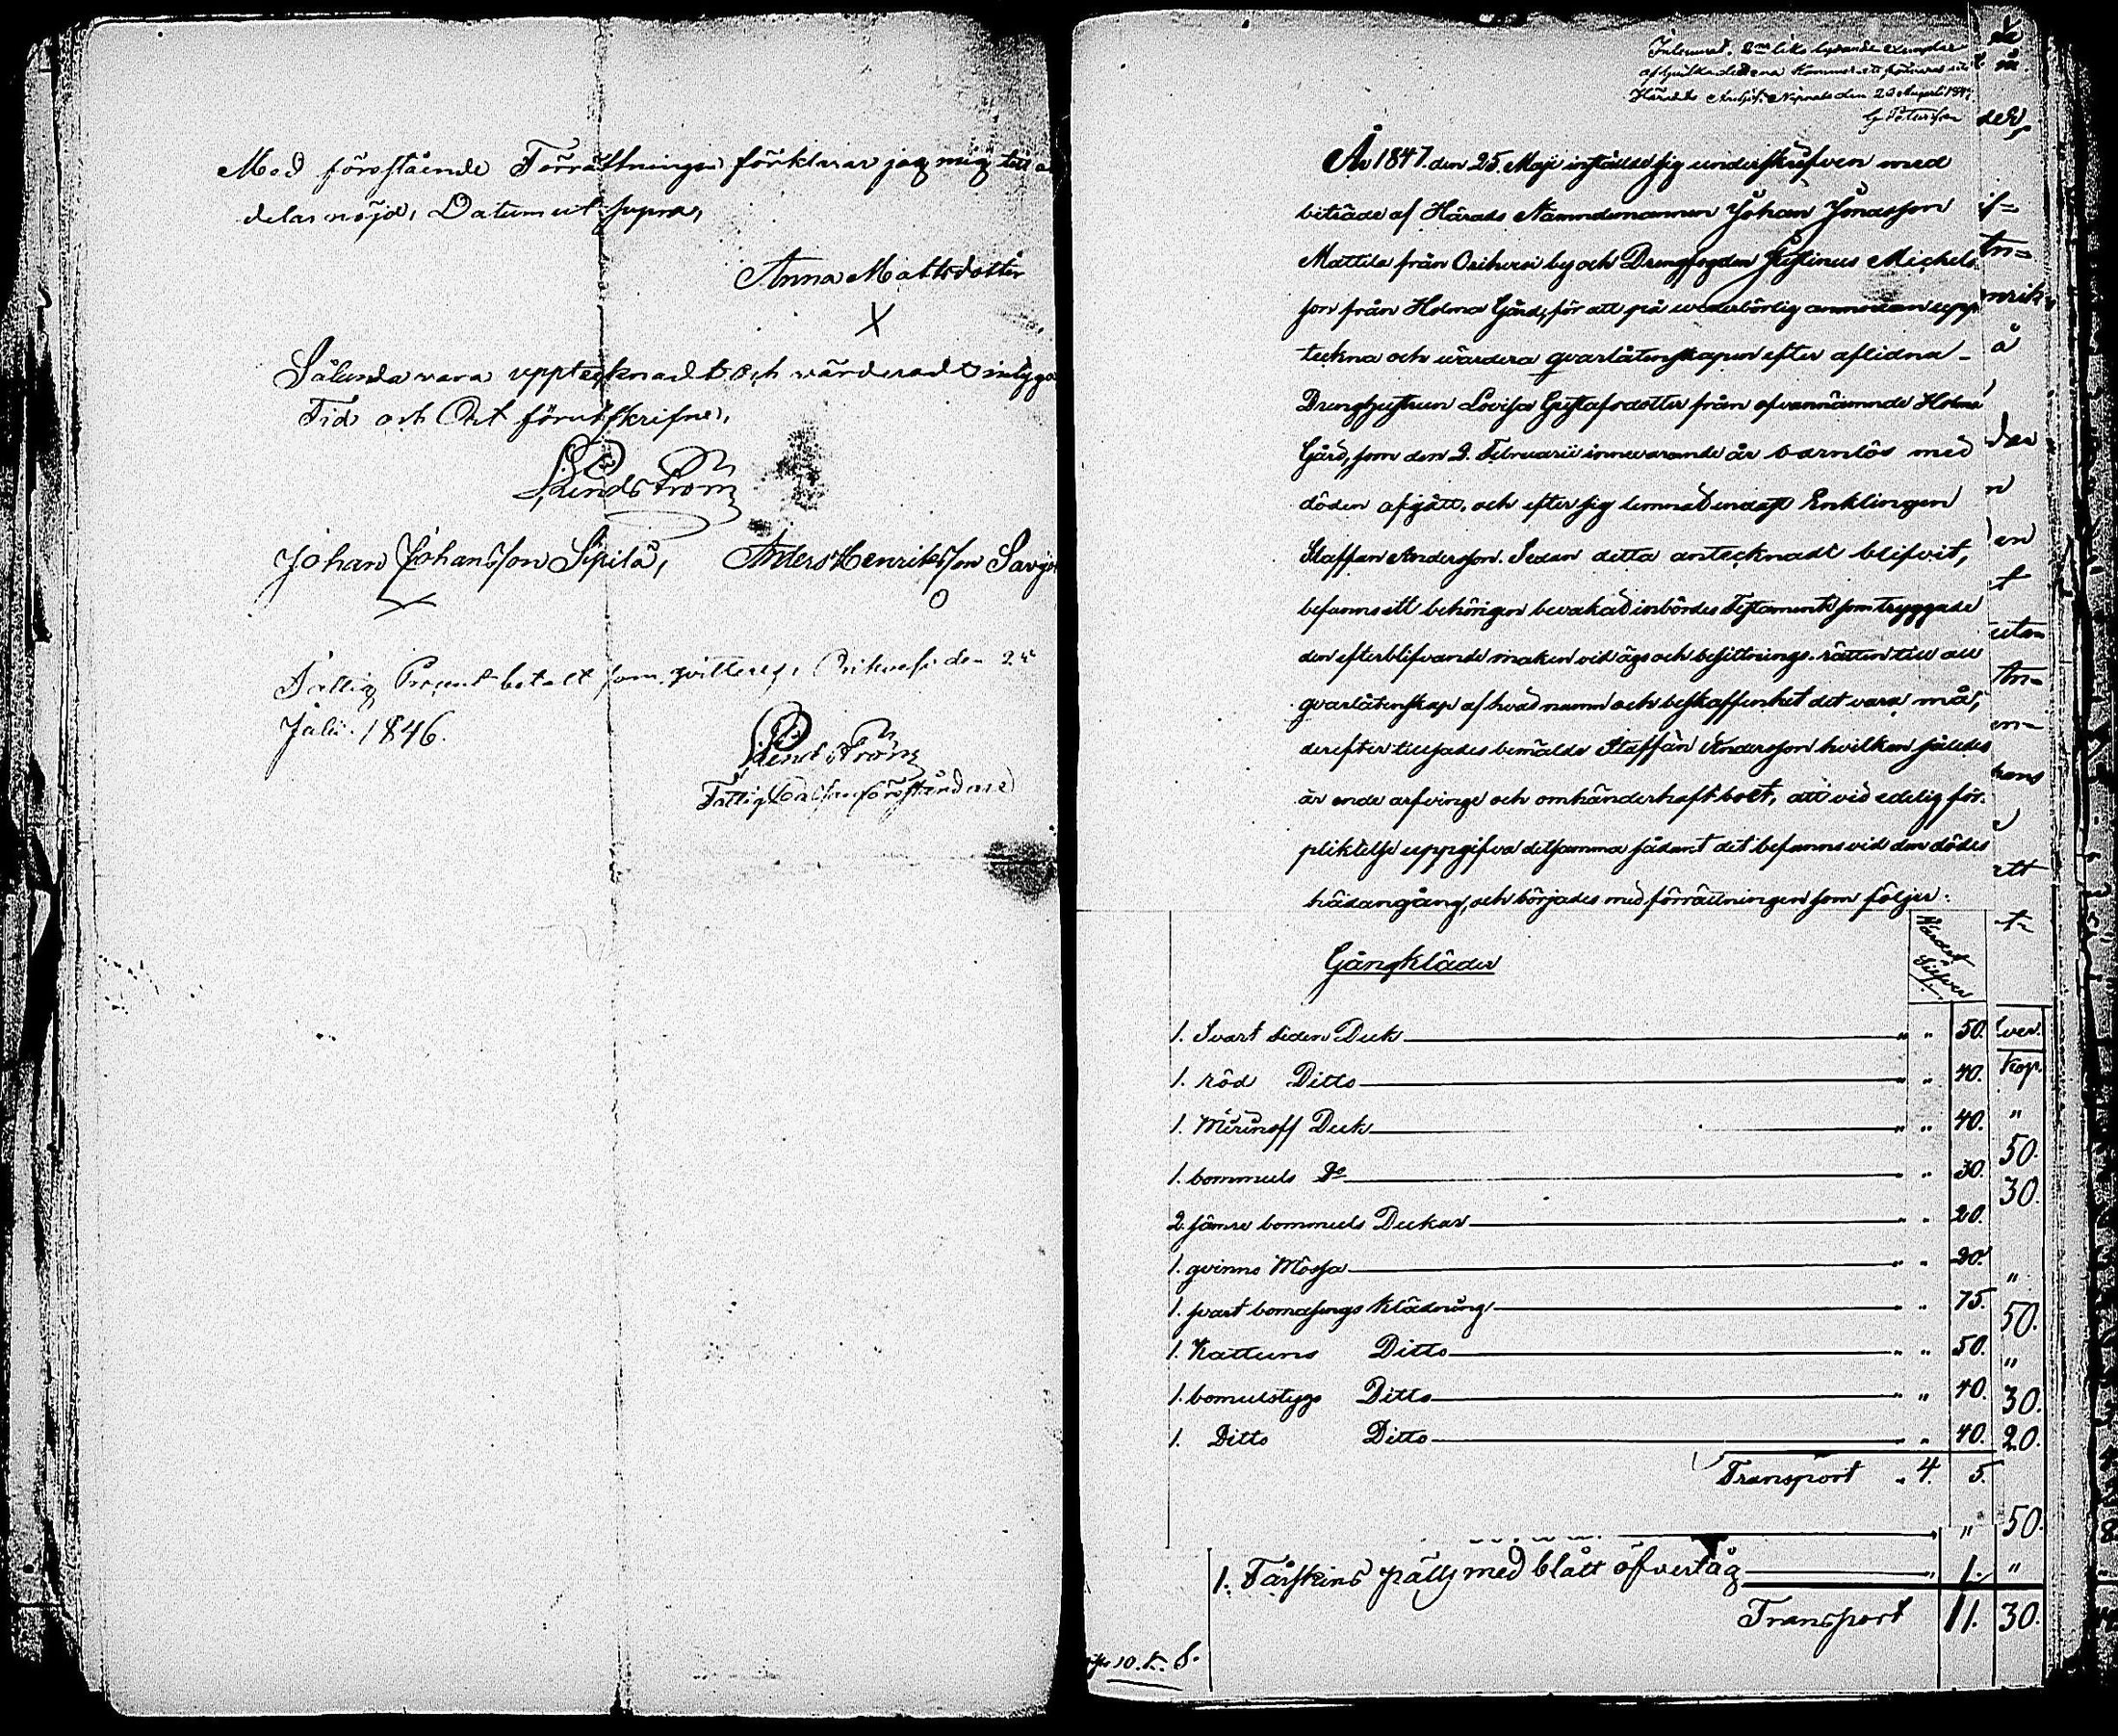 Med föreståënde Förrättningen förklarar jag mig till
delar nöjd, Datum ut supra,
Anna Mattsdotter
X
Sålunda vara upptecknadt och värderadt intyga
Tid och Ort förutskrifne,
Lindström
Johan Johansson Sipilä, Anders Henriksson
Fattig Procent betalt som qvitteras, Orihvesi den 25
Julii 1846.
Lindström
Fattig Cassan föreståndare
Inlemnad, 2ne lika lydande exemplar
af hvilka detena kommer att förvaras uti
Härads Archif. den 20 Augusti 1847
G Petersson
År 1847 den 25. Maji instälde sig underskrifven med
biträde af Härads Nämndemannen Johan Jonasson
Mattila från Orihvesi by och Drengfogden Justinus Michels
son från Holma Gård, för att på vederbörlig anmodan upp
teckna och värdera qvarlåtenskapen efter aflidna
Drenghustrun Lovisa Gustafsdotter från ofvannämnde Holma
Gård, som den 2. Februarii innevarande år barnlös med
döden afgått, och efter sig lemnat endast Enklingen
Staffan Andersson. Sedan detta antecknadt blifvit,
befanns ett behörigen bevakat inbördes Testamente som tryggade
den efterblifvande maken vid ägo och besittnings rätten till all
qvarlåtenskap af hvad namn och beskaffenhet det vara må,
derefter tillsades bemälde Staffan Andersson hvilken således
är ende arfvinge och omhänderhaft boet, att vid edelig för-
pliktelse uppgifva detsamma sådant det befanns vid den dödes
hädangång, och börjades med förrättningen som följer:
Gångkläder
Värdet
Silfver
1. Svart siden Duk " " 50.
1. röd Ditto " " 40.
1. Merinoff Duk " " 40.
1. bommuls Do " " 30.
2. sämre bommuls Dukar " " 20.
1. qvinns Mössa " " 20.
1. svart bomasings Klädning " " 75.
1. Kattuns Ditto " " 50.
1. bomulstygs Ditto " " 40.
1. Ditto Ditto " " 40.
Transport " 4. 5.
" 50.
1. Fårskins pälts med blått öfvertåg " 1. "
Transport 11. 30.
10. K. S.
ver.
Kop.
"
50.
30.
"
50.
"
30.
20.